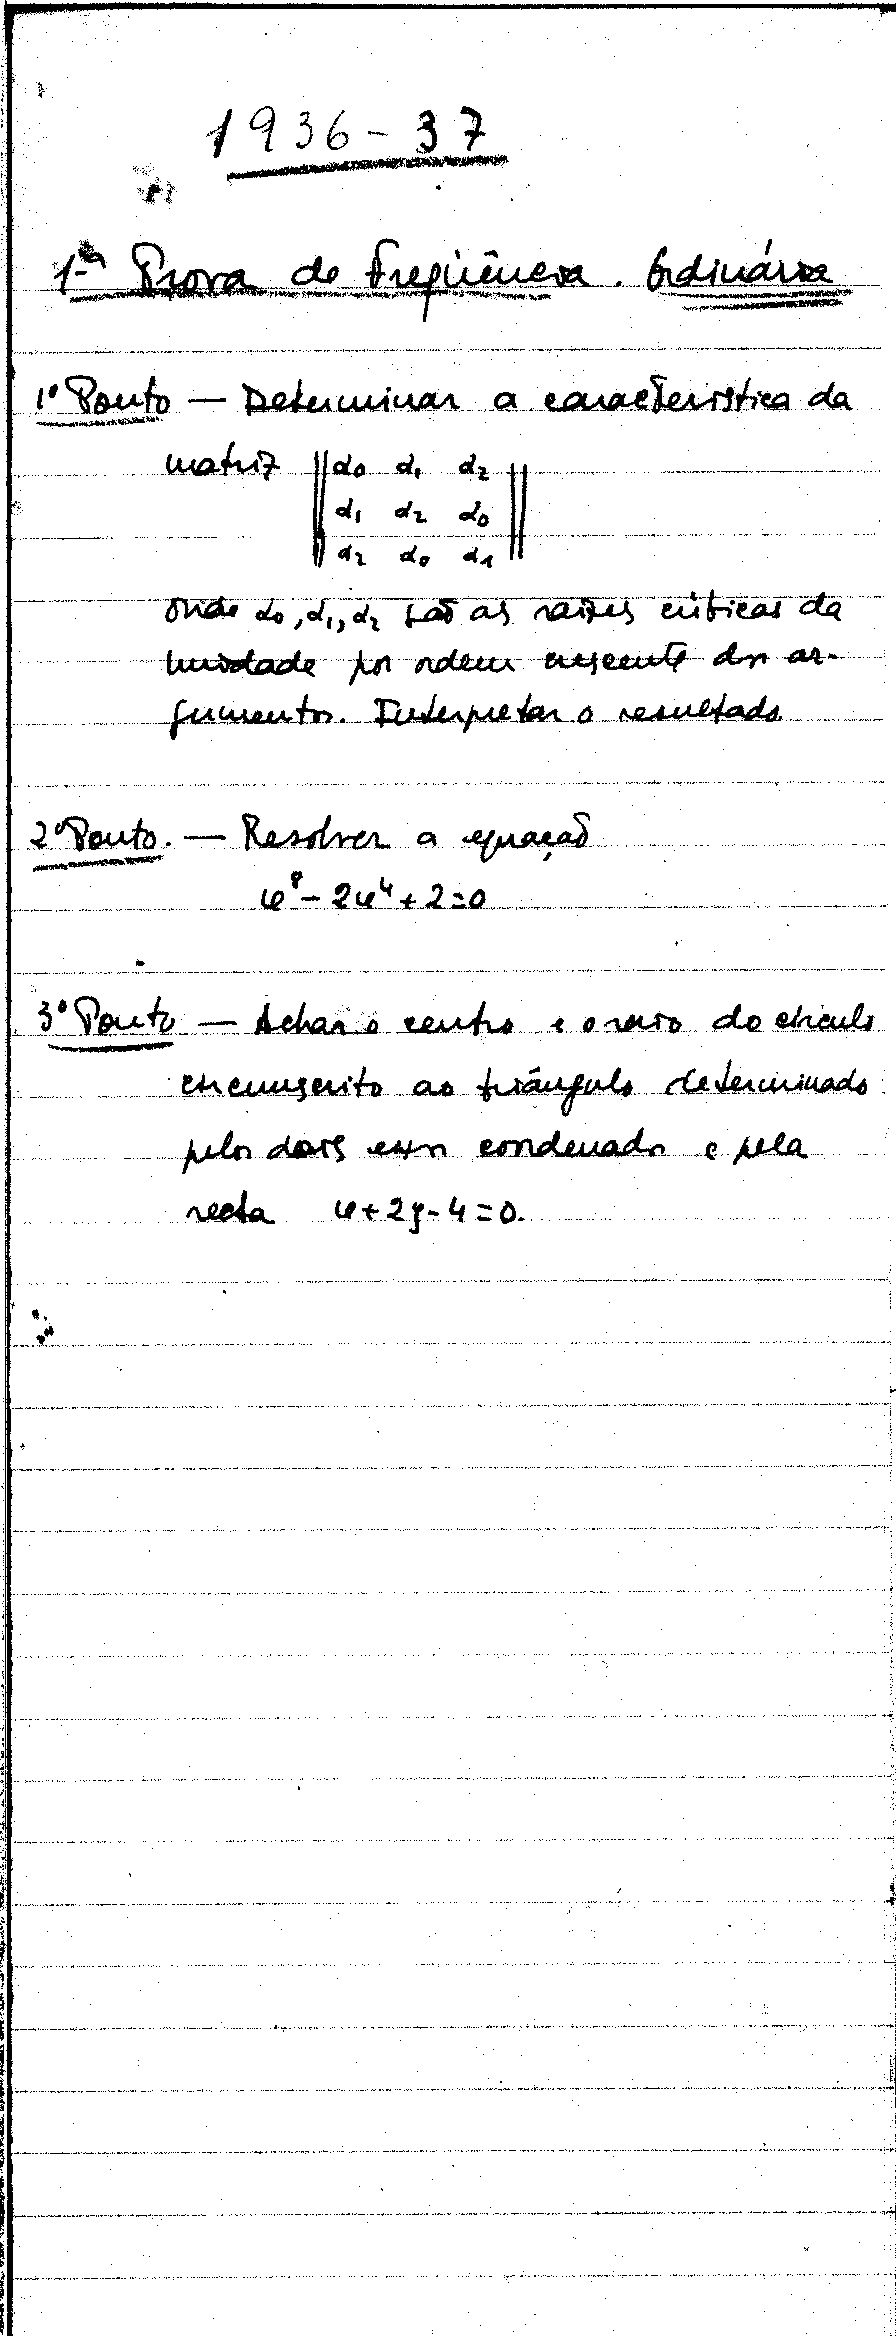 1936-37
1ª Prova de Freqüência. Ordinária
1º Ponto — Determinar a característica da
matriz ‖ α₀ α₁ α₂ ‖
α₁ α₂ α₀
α₂ α₀ α₁
onde α₀, α₁, α₂ são as raizes cúbicas da
unidade por ordem crescente dos ar-
gumentos. Interpretar o resultado
2º Ponto. — Resolver a equação
x⁸ - 2x⁴ + 2 = 0
3º Ponto — Achar o centro e o raio do circulo
circunscrito ao triângulo determinado
pelos dois eixos coordenados e pela
recta x + 2y - 4 = 0.